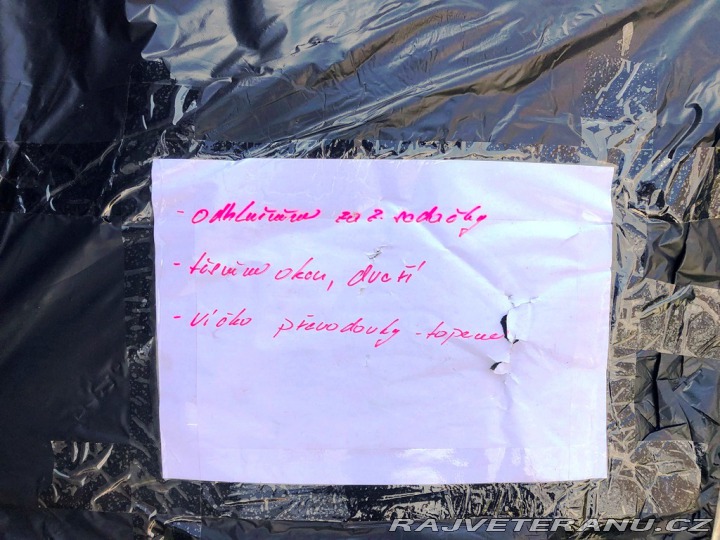 - odhlučnění za z. sedačky
- těsnění oken, dveří
- víčko převodovky - topení
RAJVETERANU.CZ